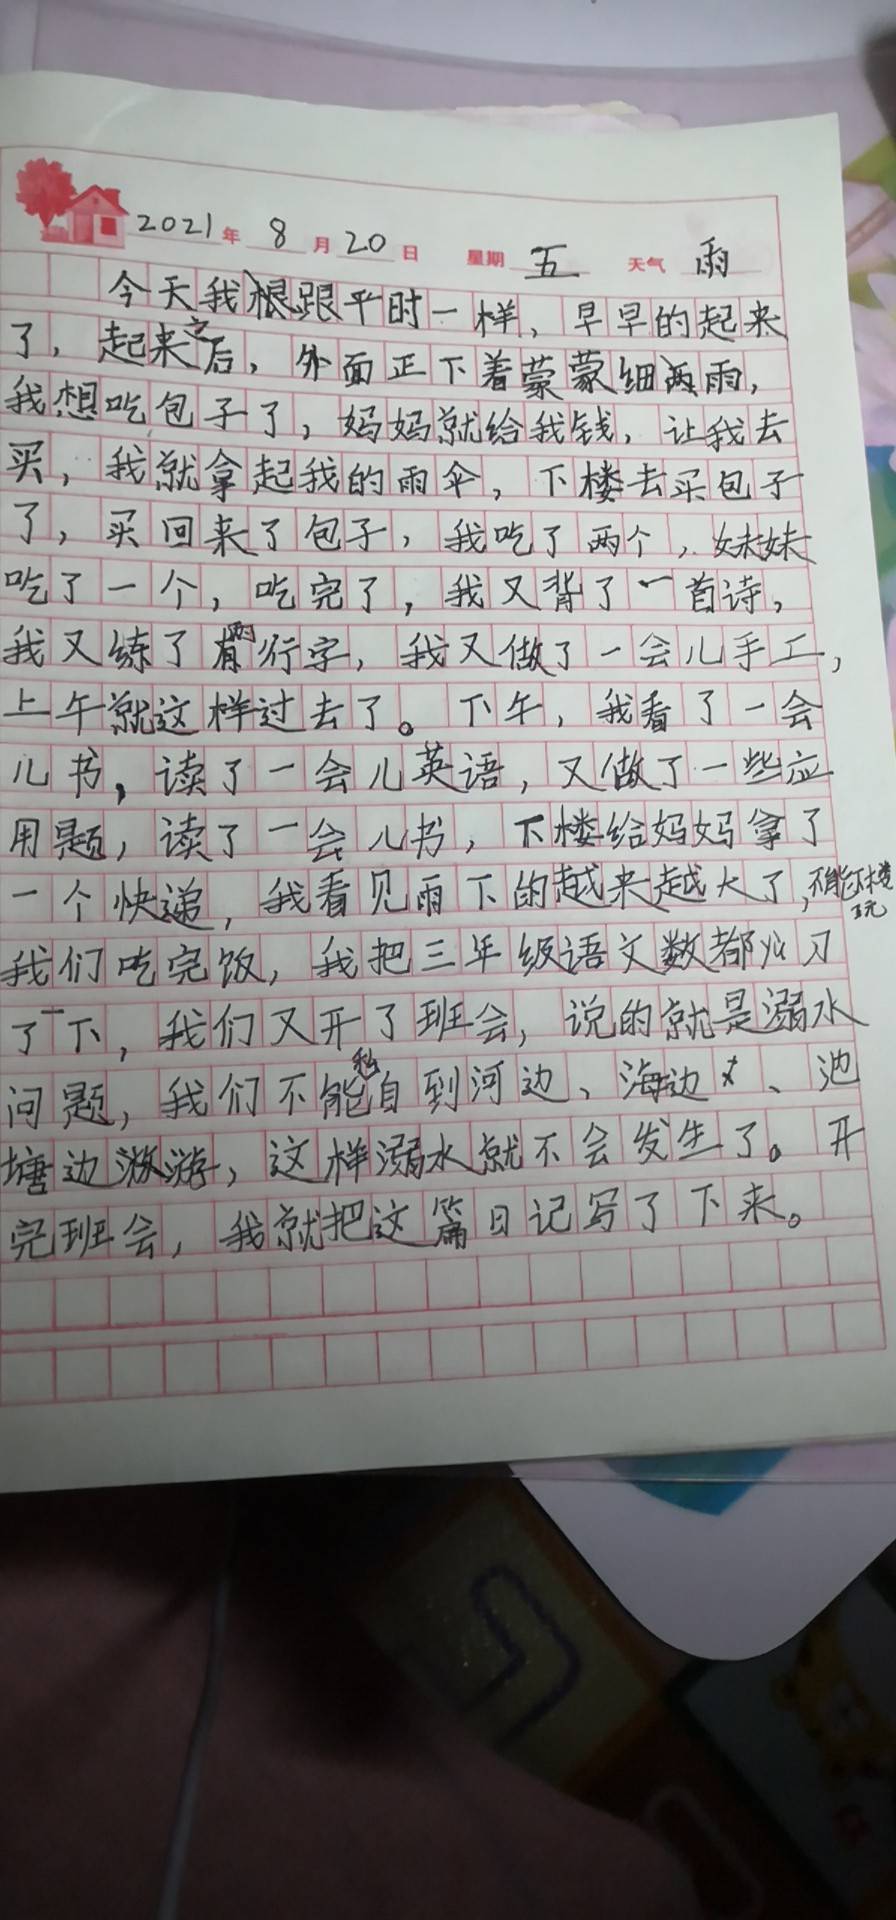 2021年 8月20日 星期 五 天气 雨
今天我跟平时一样，早早的起来
了，起来之后，外面正下着蒙蒙细雨，
我想吃包子了，妈妈就给我钱，让我去
买，我就拿起我的雨伞，下楼去买包子
了，买回来了包子，我吃了两个，妹妹
吃了一个，吃完了，我又背了一首诗，
我又练了两行字，我又做了一会儿手工，
上午就这样过去了。下午，我看了一会
儿书，读了一会儿英语，又做了一些应
用题，读了一会儿书，下楼给妈妈拿了
一个快递，我看见雨下的越来越大了，不能下楼玩
我们吃完饭，我把三年级语文数都习
了一下，我们又开了班会，说的就是溺水
问题，我们不能私自到河边、海边、池
塘边游，这样溺水就不会发生了。开
完班会，我就把这篇日记写了下来。